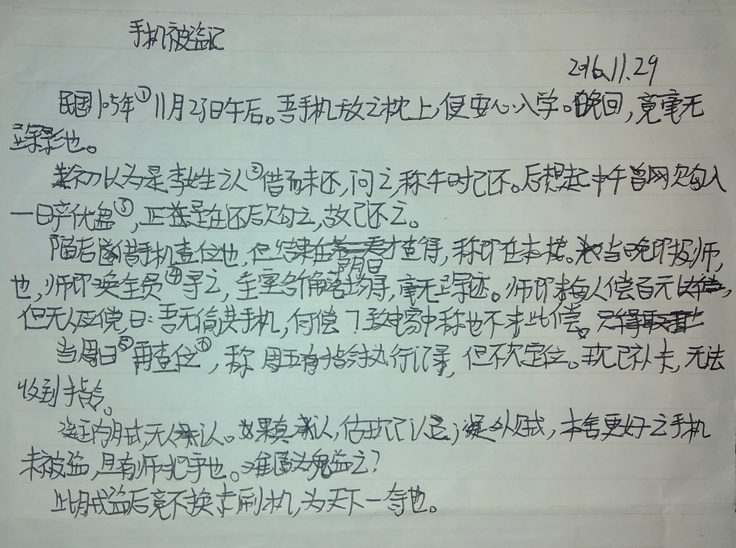 手机被盗记
2016.11.29
民国105年①11月23日午后。吾手机放之枕上,便安心入学。晚回,竟毫无
踪影也。
初以为是李姓之人②借而未还,问之,称午时已还。后想起中午曾网购入
一日产优盘③,正是在还后购之,故已还之。
随后借手机查位也,但结果在明日才查得,称即在本楼。当晚即报师,
也,师即唤全员④寻之,至宰各角落搜得,毫无踪迹。师即求每人偿百元
但无人应偿,曰:吾无偷其手机,何偿?致电家中称也不求此偿。
当周日⑤再查位⑥,称周五有指令执行记录,但不知定位。现已补卡,无法
收到指令。
内贼无人承认。如果真承认,估现已认之;疑外贼,本舍更好之手机
未被盗,且有师把手也。难道为鬼盗之?
此贼盗后竟不换卡刷机,为天下一奇也。